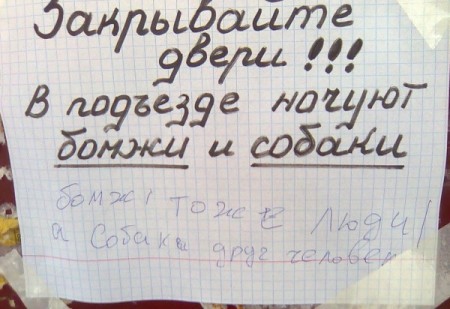 Закрывайте
двери!!!
В подъезде ночуют
бомжи и собаки
бомжи тоже люди
а собака друг человек